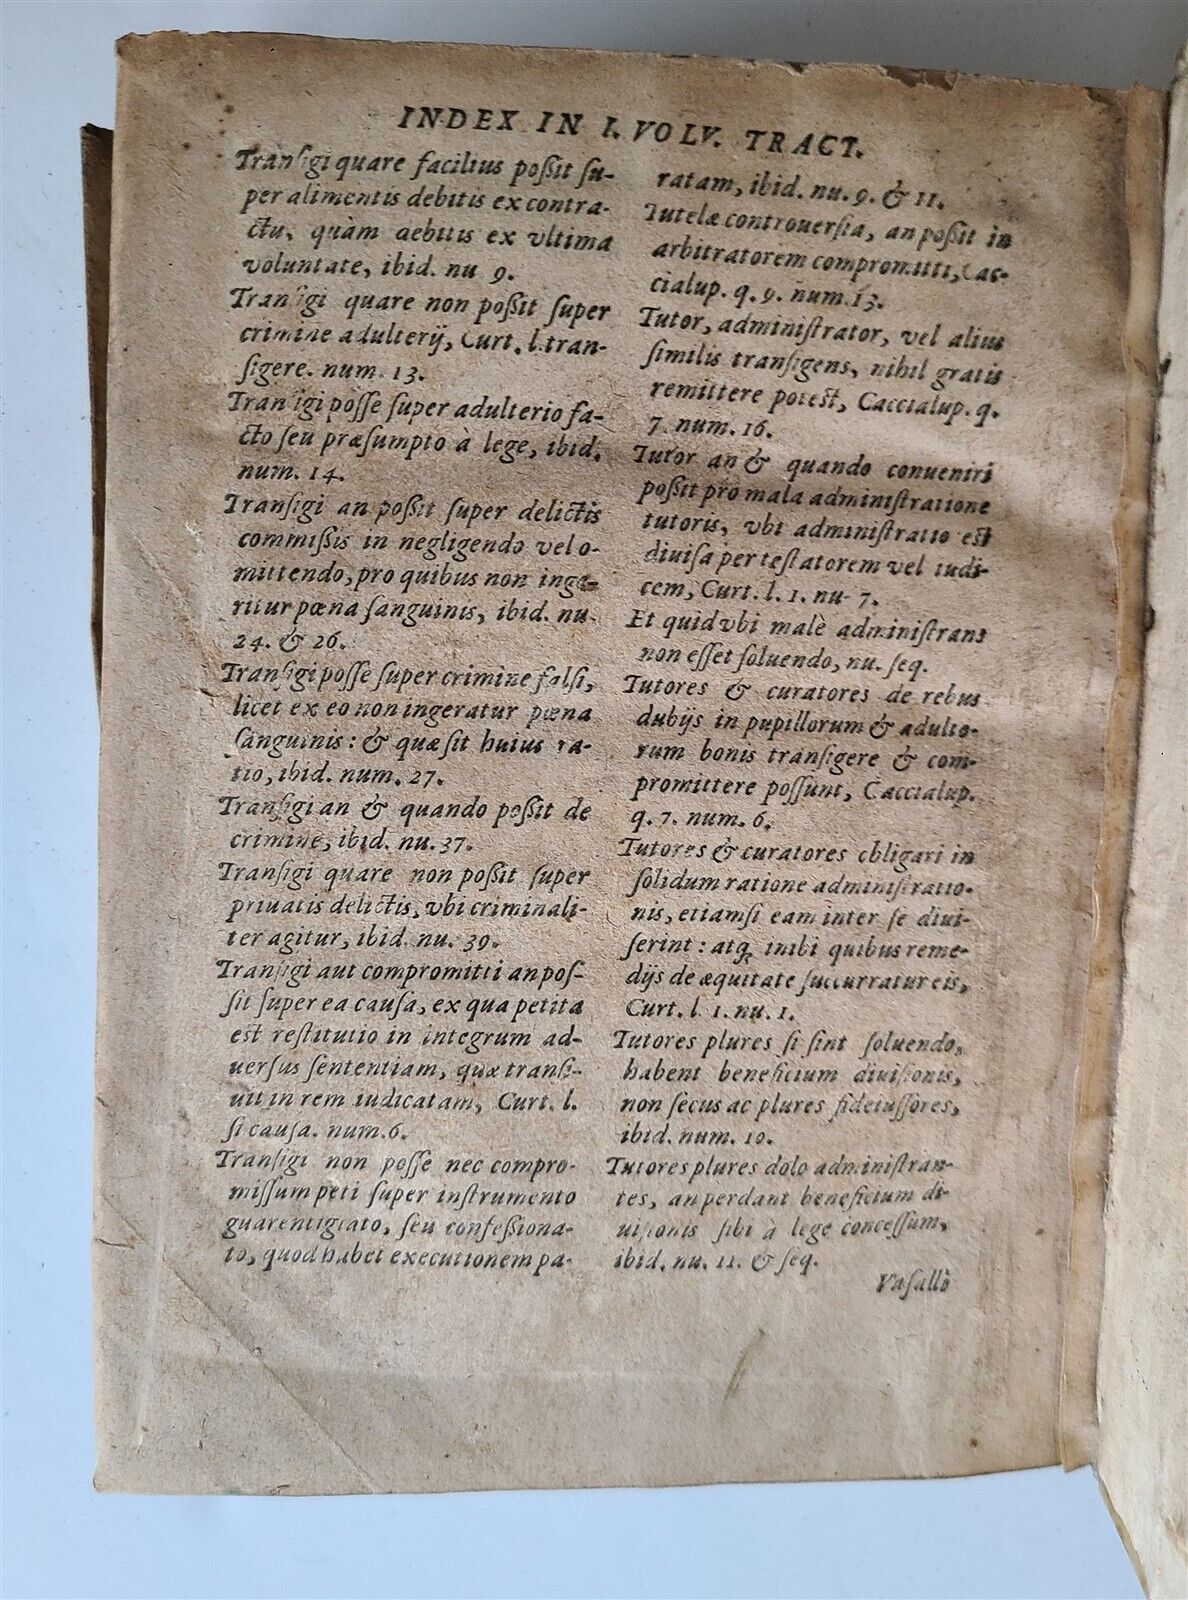 INDEX IN I. VOLV. TRACT.
Transigi quare facilius poßit su-
per alimentis debitis ex contra-
ctu, quàm debitis ex vltima
voluntate, ibid. nu 9.
Transigi quare non poßit super
crimine adulterij, Curt. l. tran-
sigere. num. 13.
Transigi posse super adulterio fa-
cto seu præsumpto à lege, ibid.
num. 14.
Transigi an poßit super delictis
commißis in negligendo vel o-
mittendo, pro quibus non inge-
ritur pœna sanguinis, ibid. nu.
24. & 26.
Transigi posse super crimine falsi,
licet ex eo non ingeratur pœna
sanguinis: & quæ sit huius ra-
tio, ibid. num. 27.
Transigi an & quando poßit de
crimine, ibid. nu. 37.
Transigi quare non poßit super
priuatis delictis, vbi criminali-
ter agitur, ibid. nu. 39.
Transigi aut compromitti an pos-
sit super ea causa, ex qua petita
est restitutio in integrum ad-
uersus sententiam, quæ transi-
uit in rem iudicatam, Curt. l.
si causa. num. 6.
Transigi non posse nec compro-
missum peti super instrumento
guarentigiato, seu confeßiona-
to, quod habet executionem pa-
ratam, ibid. nu. 9. & 11.
Tutelæ controuersia, an poßit in
arbitratorem compromitti, Cac-
cialup. q. 9. num. 13.
Tutor, administrator, vel alius
similis transigens, nihil gratis
remittere potest, Caccialup. q.
7. num. 16.
Tutor an & quando conueniri
poßit pro mala administratione
tutoris, vbi administratio est
diuisa per testatorem vel iudi-
cem, Curt. l. 1. nu. 7.
Et quid vbi malè administrans
non esset soluendo, nu. seq.
Tutores & curatores de rebus
dubijs in pupillorum & adulto-
rum bonis transigere & com-
promittere possunt, Caccialup.
q. 7. num. 6.
Tutores & curatores obligari in
solidum ratione administratio-
nis, etiamsi eam inter se diui-
serint: atq; inibi quibus reme-
dijs de æquitate succurratur eis,
Curt. l. 1. nu. 1.
Tutores plures si sint soluendo,
habent beneficium diuisionis,
non secus ac plures fideiussores,
ibid. num. 10.
Tutores plures dolo administran-
tes, an perdant beneficium di-
uisionis sibi à lege concessum,
ibid. nu. 11. & seq.
Vasallo